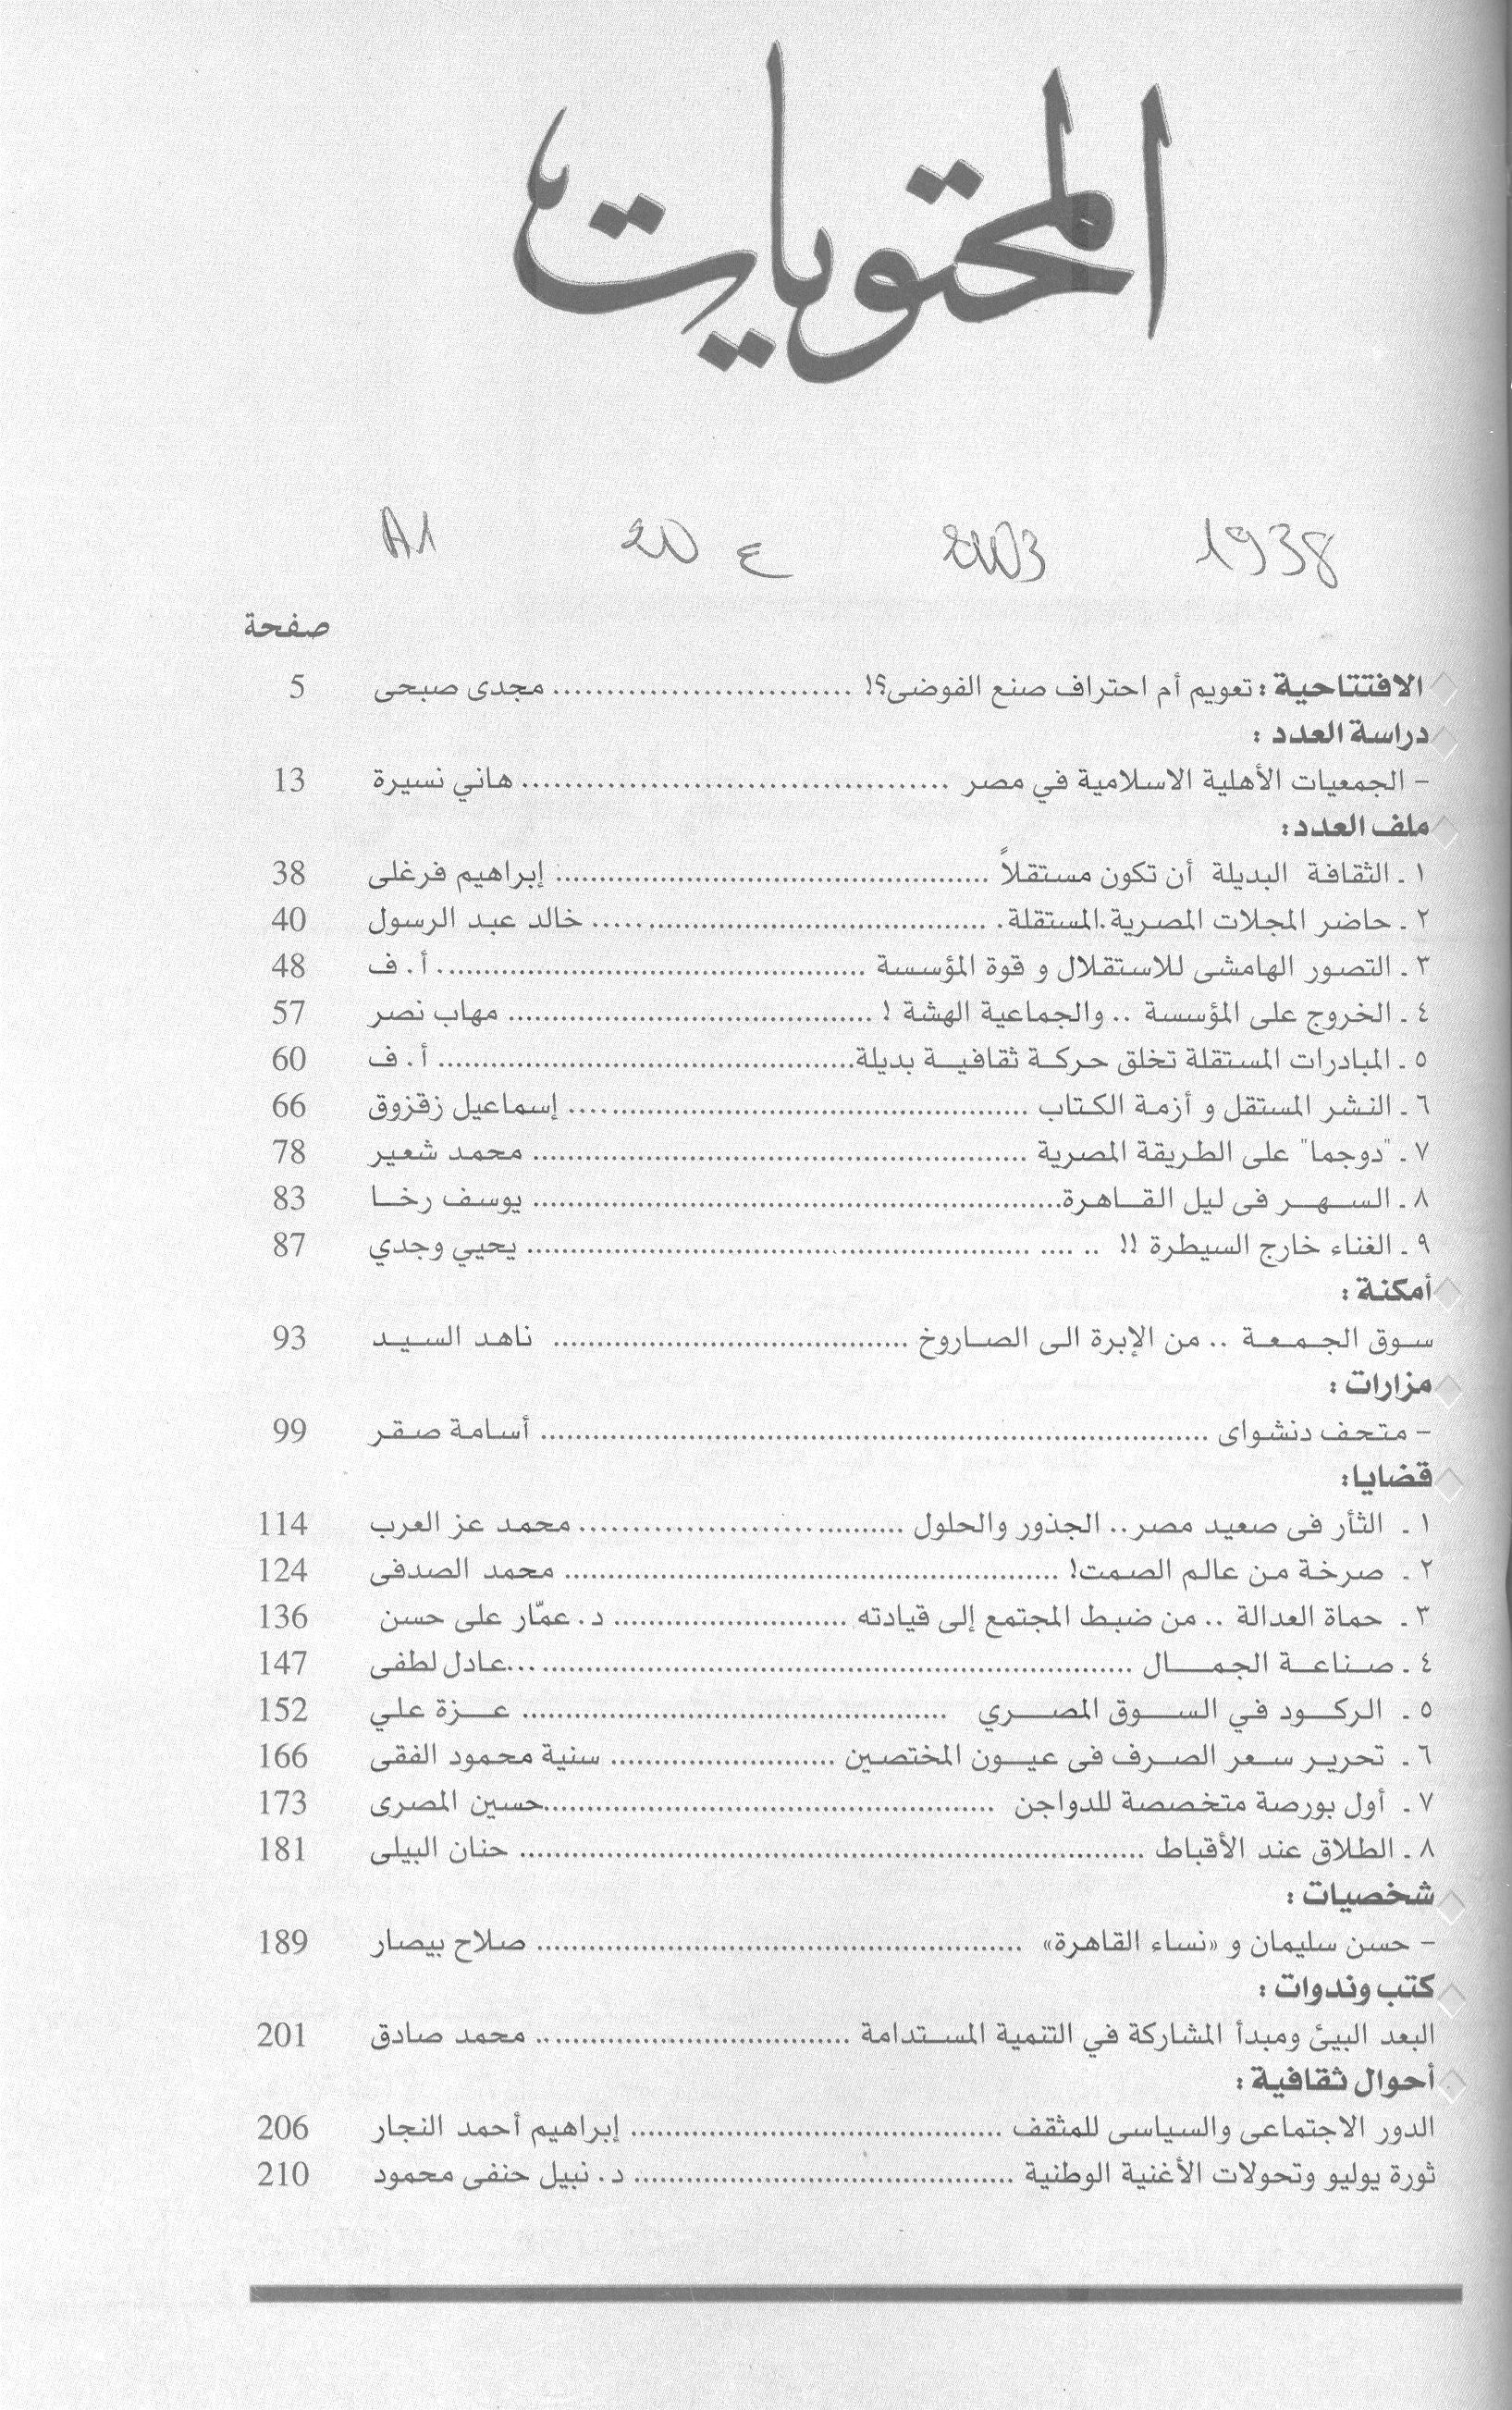 المحتويات
1938 2003 ع 20 A1
صفحة
الافتتاحية : تعويم أم احتراف صنع الفوضى؟! ............................ مجدى صبحى 5
دراسة العدد :
– الجمعيات الأهلية الاسلامية في مصر ........................................ هاني نسيرة 13
ملف العدد:
١ ـ الثقافة البديلة أن تكون مستقلاً ................................................ إبراهيم فرغلى 38
٢ ـ حاضر المجلات المصرية.المستقلة. ........................................... خالد عبد الرسول 40
٣ ـ التصور الهامشى للاستقلال و قوة المؤسسة ............................................... أ. ف 48
٤ ـ الخروج على المؤسسة .. والجماعية الهشة ! ........................................ مهاب نصر 57
٥ ـ المبادرات المستقلة تخلق حركة ثقافية بديلة.............................................. أ. ف 60
٦ ـ النشر المستقل و أزمة الكتاب .................................................. إسماعيل زقزوق 66
٧ ـ "دوجما" على الطريقة المصرية ...................................................... محمد شعير 78
٨ ـ السهر فى ليل القاهرة.......................................................... يوسف رخا 83
٩ ـ الغناء خارج السيطرة !! .. .... ..................................................... يحيي وجدي 87
أمكنة :
سوق الجمعة .. من الإبرة الى الصاروخ ....................................... ناهد السيد 93
مزارات :
– متحف دنشواى ......................................................................... أسامة صقر 99
قضايا:
١ ـ الثأر فى صعيد مصر.. الجذور والحلول ............................... محمد عز العرب 114
٢ ـ صرخة من عالم الصمت! ...................................................... محمد الصدفى 124
٣ ـ حماة العدالة .. من ضبط المجتمع إلى قيادته .......................... د. عمّار على حسن 136
٤ ـ صناعة الجمال ....................................................................عادل لطفى 147
٥ ـ الركود في السوق المصري .............................................. عزة علي 152
٦ ـ تحرير سعر الصرف فى عيون المختصين ......................... سنية محمود الفقى 166
٧ ـ أول بورصة متخصصة للدواجن ..................................................حسين المصرى 173
٨ ـ الطلاق عند الأقباط .................................................................... حنان البيلى 181
شخصيات :
– حسن سليمان و «نساء القاهرة» ..................................................... صلاح بيصار 189
كتب وندوات :
البعد البيئ ومبدأ المشاركة في التنمية المستدامة .................................. محمد صادق 201
أحوال ثقافية :
الدور الاجتماعى والسياسى للمثقف ......................................... إبراهيم أحمد النجار 206
ثورة يوليو وتحولات الأغنية الوطنية .......................................... د. نبيل حنفى محمود 210